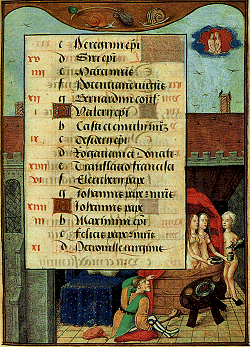 c Peregrini epi
xv d Siri epi
iiii e
f Potentiane virginis
xii g Bernardini conf
i Valerii epi
b Casti et emilii
ix c Desiderii epi
d Rogatiani et Donati
xvii e Translatio francisci
vi f Eleutherii pape
g Johannis pape
xiiii Johannis pape
b Maximini epi
c Felicis pape
xi d Petronille virginis